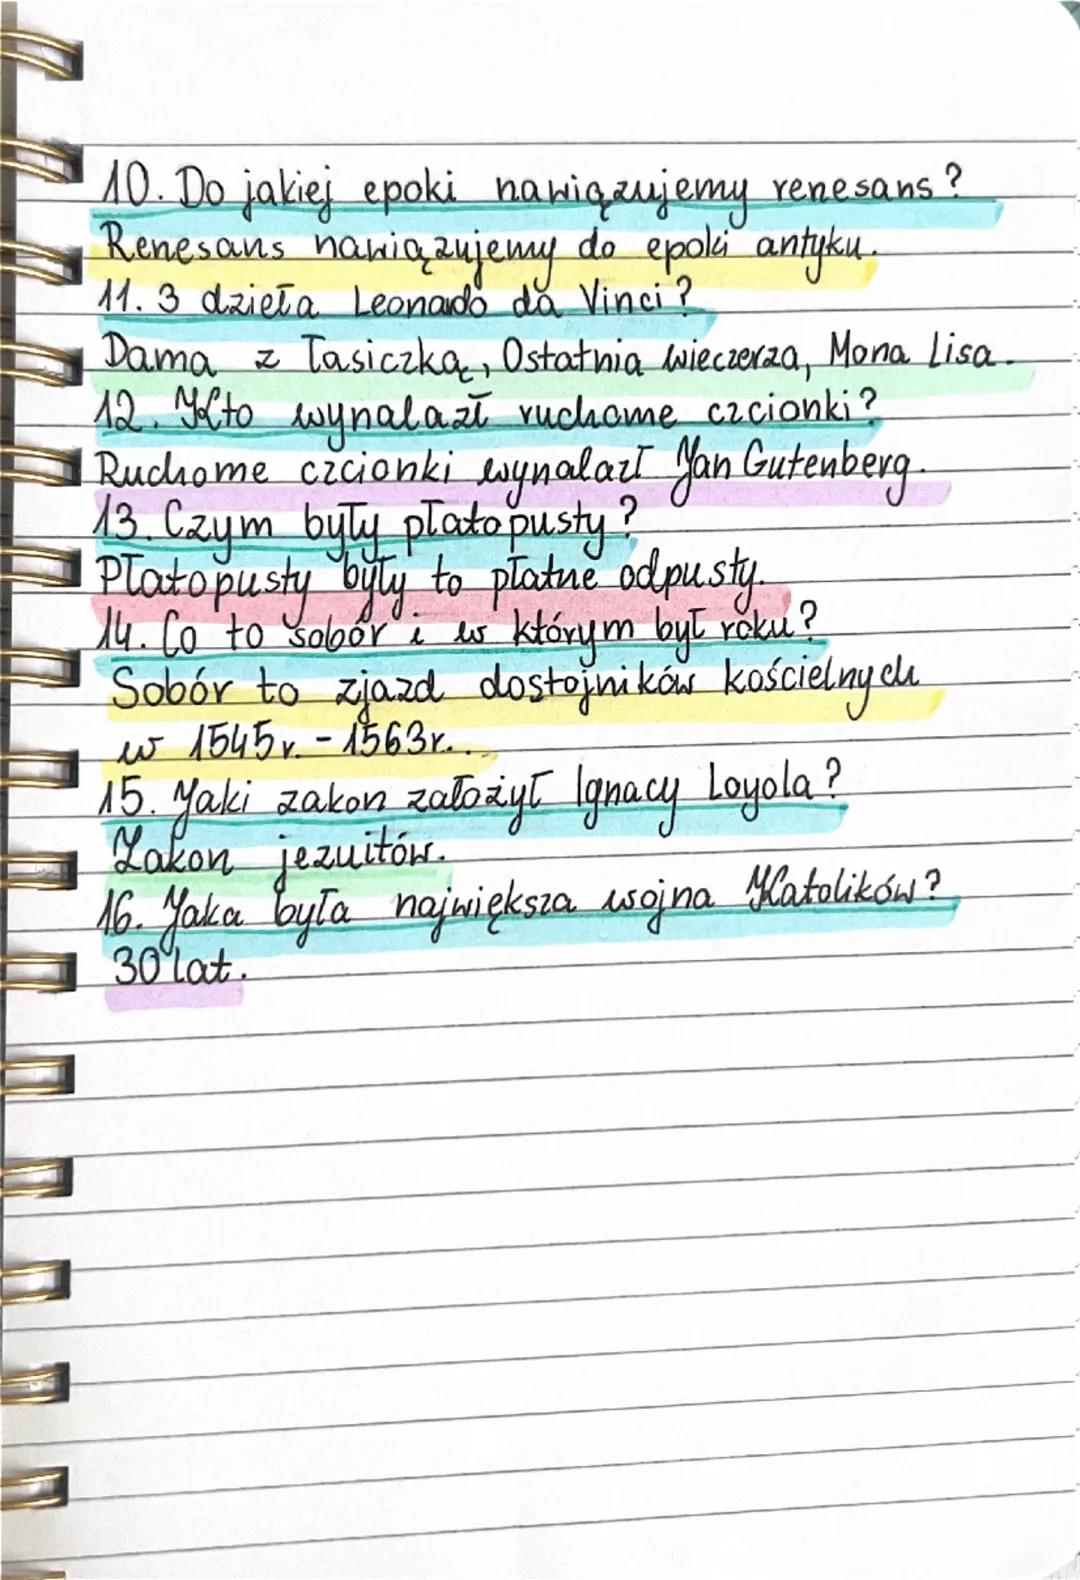 10. Do jakiej epoki nawiązujemy renesans?
Renesans nawiązujemy do epoki antyku.
11. 3 dzieła Leonardo da Vinci?
Dama z łasiczką, Ostatnia wieczerza, Mona Lisa.
12. Kto wynalazł ruchome czcionki?
Ruchome czcionki wynalazł Jan Gutenberg.
13. Czym były płatopusty?
Płatopusty były to płatne odpusty.
14. Co to sobór i w którym był roku?
Sobór to zjazd dostojników kościelnych
w 1545r. - 1563r..
15. Jaki zakon założył Ignacy Loyola?
Zakon jezuitów.
16. Jaka była największa wojna Katolików?
30 lat.